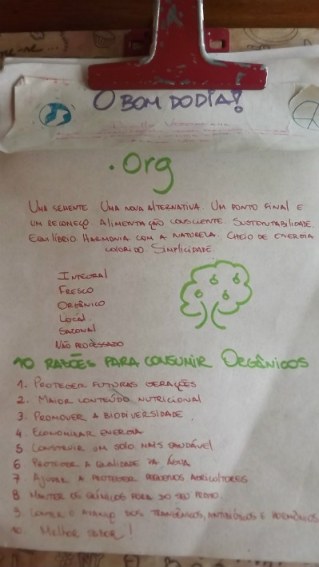 O BOM DO DIA!
.Org
UMA SEMENTE. UMA NOVA ALTERNATIVA. UM PONTO FINAL E
UM RECOMEÇO. ALIMENTAÇÃO CONSCIENTE. SUSTENTABILIDADE.
EQUILÍBRIO HARMONIA COM A NATUREZA. CHEIO DE ENERGIA
SIMPLICIDADE.
INTEGRAL
FRESCO
ORGÂNICO
LOCAL
SAZONAL
NÃO PROCESSADO
10 RAZÕES PARA CONSUMIR ORGÂNICOS
1. PROTEGER FUTURAS GERAÇÕES
2. MAIOR CONTEÚDO NUTRICIONAL
3. PROMOVER A BIODIVERSIDADE
4. ECONOMIZAR ENERGIA
5 CONSTRUIR UM SOLO MAIS SAUDÁVEL
6 PROTEGER A QUALIDADE DA ÁGUA
7 AJUDAR A PROTEGER PEQUENOS AGRICULTORES
8 MANTER OS QUÍMICOS FORA DO SEU PRATO
9. CONTER O AVANÇO DOS TRANSGÊNICOS, ANTIBIÓTICOS E HORMÔNIOS
10. MELHOR SABOR!